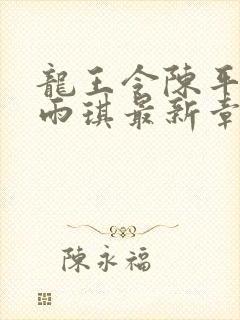 龍王令陳平
雨琪最新章
陳永福